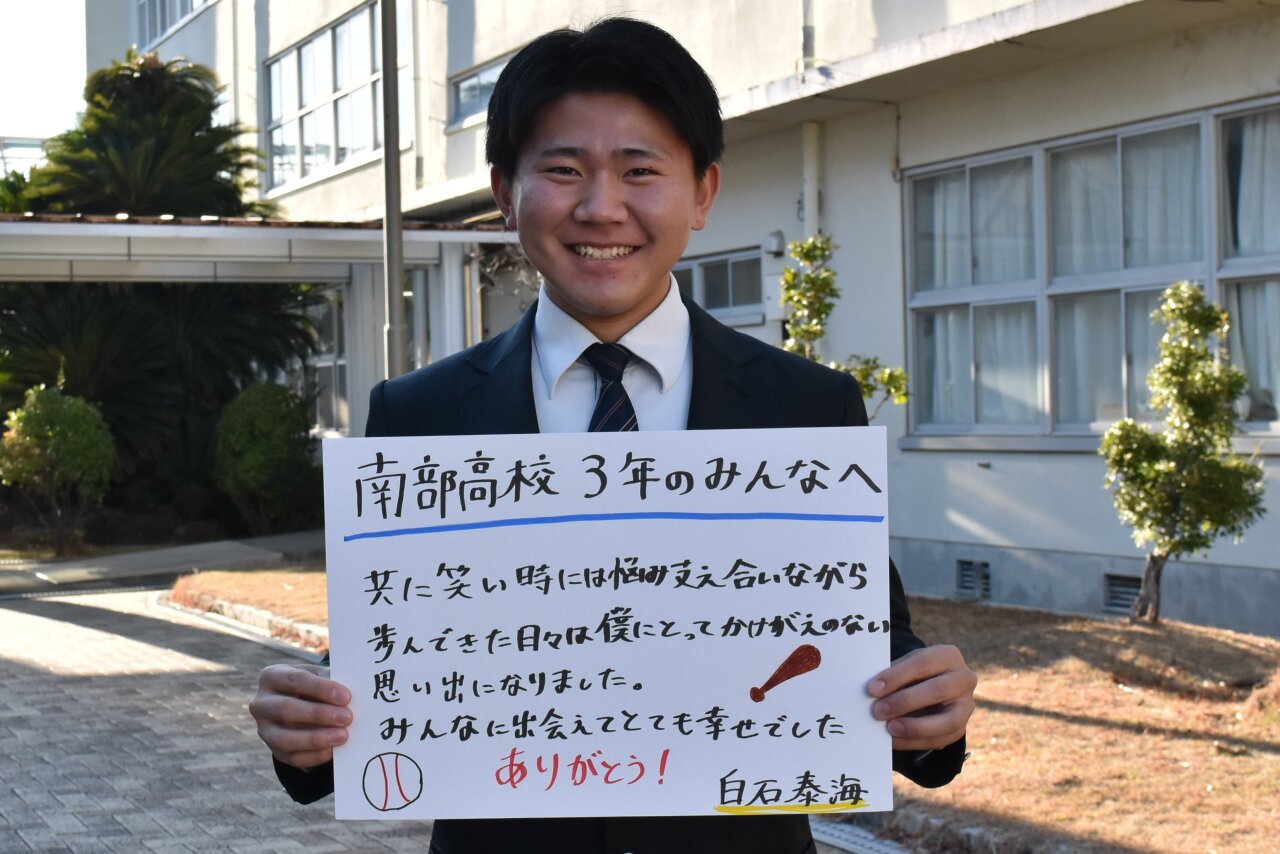 南部高校 3年のみんなへ
共に笑い時には悩み支え合いながら
歩んできた日々は僕にとってかけがえのない
思い出になりました。
みんなに出会えてとても幸せでした
ありがとう!
白石泰海